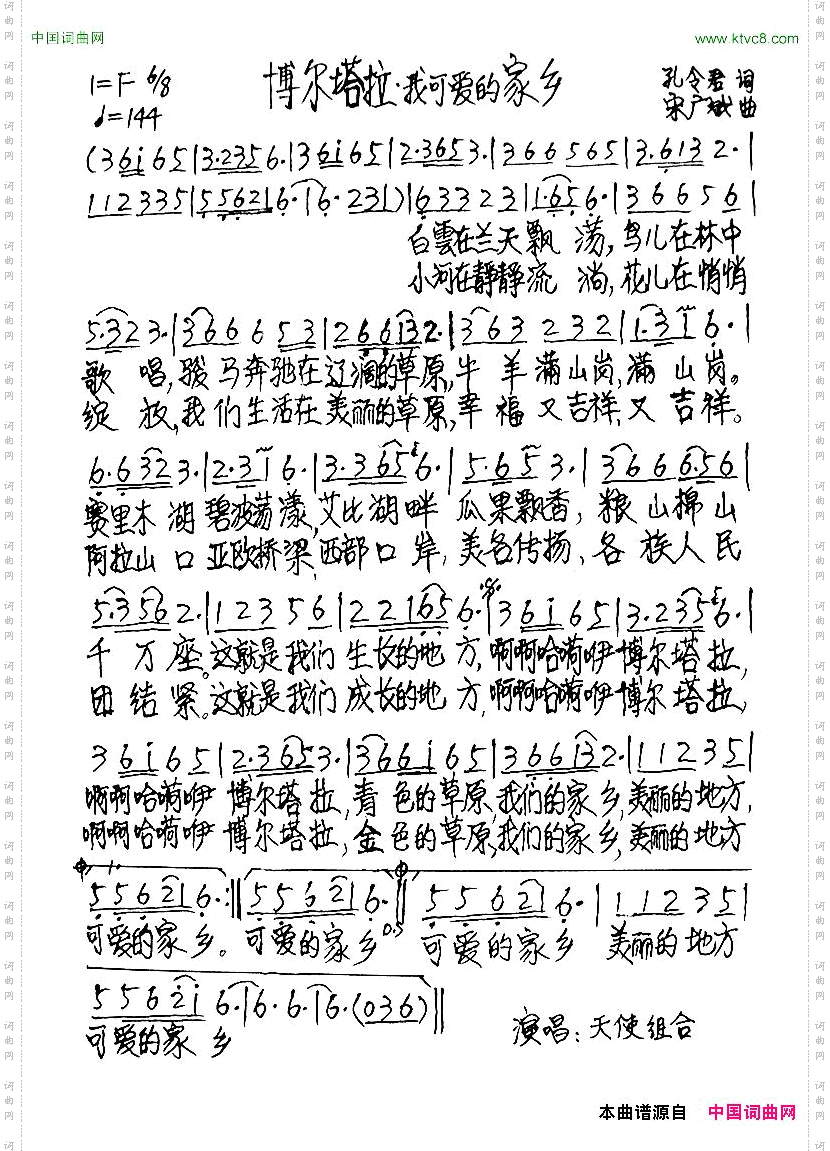 中国词曲网 www.ktvc8.com
1=F 6/8 博尔塔拉·我可爱的家乡 孔令君 词
♩=144 宋广斌 曲
(36i65|3·2356·|36i65|2·3653·|366565|3·6132·|
112335|55621|6·|6·231)|633231|1·656·|36656|
白雲在兰天飘 荡,鸟儿在林中
小河在静静流 淌,花儿在悄悄
5·323·|366653|266132·|363232|1·316·|
歌 唱,骏马奔驰在辽阔的草原,牛 羊 满山岗,满 山 岗。
绽 放,我们生活在美丽的草原,幸 福 又吉祥,又 吉 祥。
6·6323·|2·316·|3·3656·|5·653·|366656|
赛里木 湖碧波荡漾,艾比湖畔 瓜果飘香, 粮 山棉山
阿拉山 口亚欧桥梁,西部口 岸,美名传扬、各 族人民
5·3562·|12356|221656·|36i65|3·2356·|
千 万座。这就是我们 生长的地 方,啊啊哈嗬咿博尔塔 拉,
团 结紧。这就是我们 成长的地 方,啊啊哈嗬咿博尔塔 拉,
36i65|2·3653·|366165|366132·|11235|
啊啊哈嗬咿 博尔塔 拉,青 色的草原,我们的家乡,美丽的地方,
啊啊哈嗬咿 博尔塔 拉,金 色的草原,我们的家乡,美丽的地方
1.
556216·:‖556216·‖556216·|11235|
可爱的家 乡。可爱的家 乡 D.S 可爱的家乡 美丽的地方
5562i6·|6·6·|6·(036)‖
可爱的家 乡 演唱:天使组合
本曲谱源自 中国词曲网
词曲网